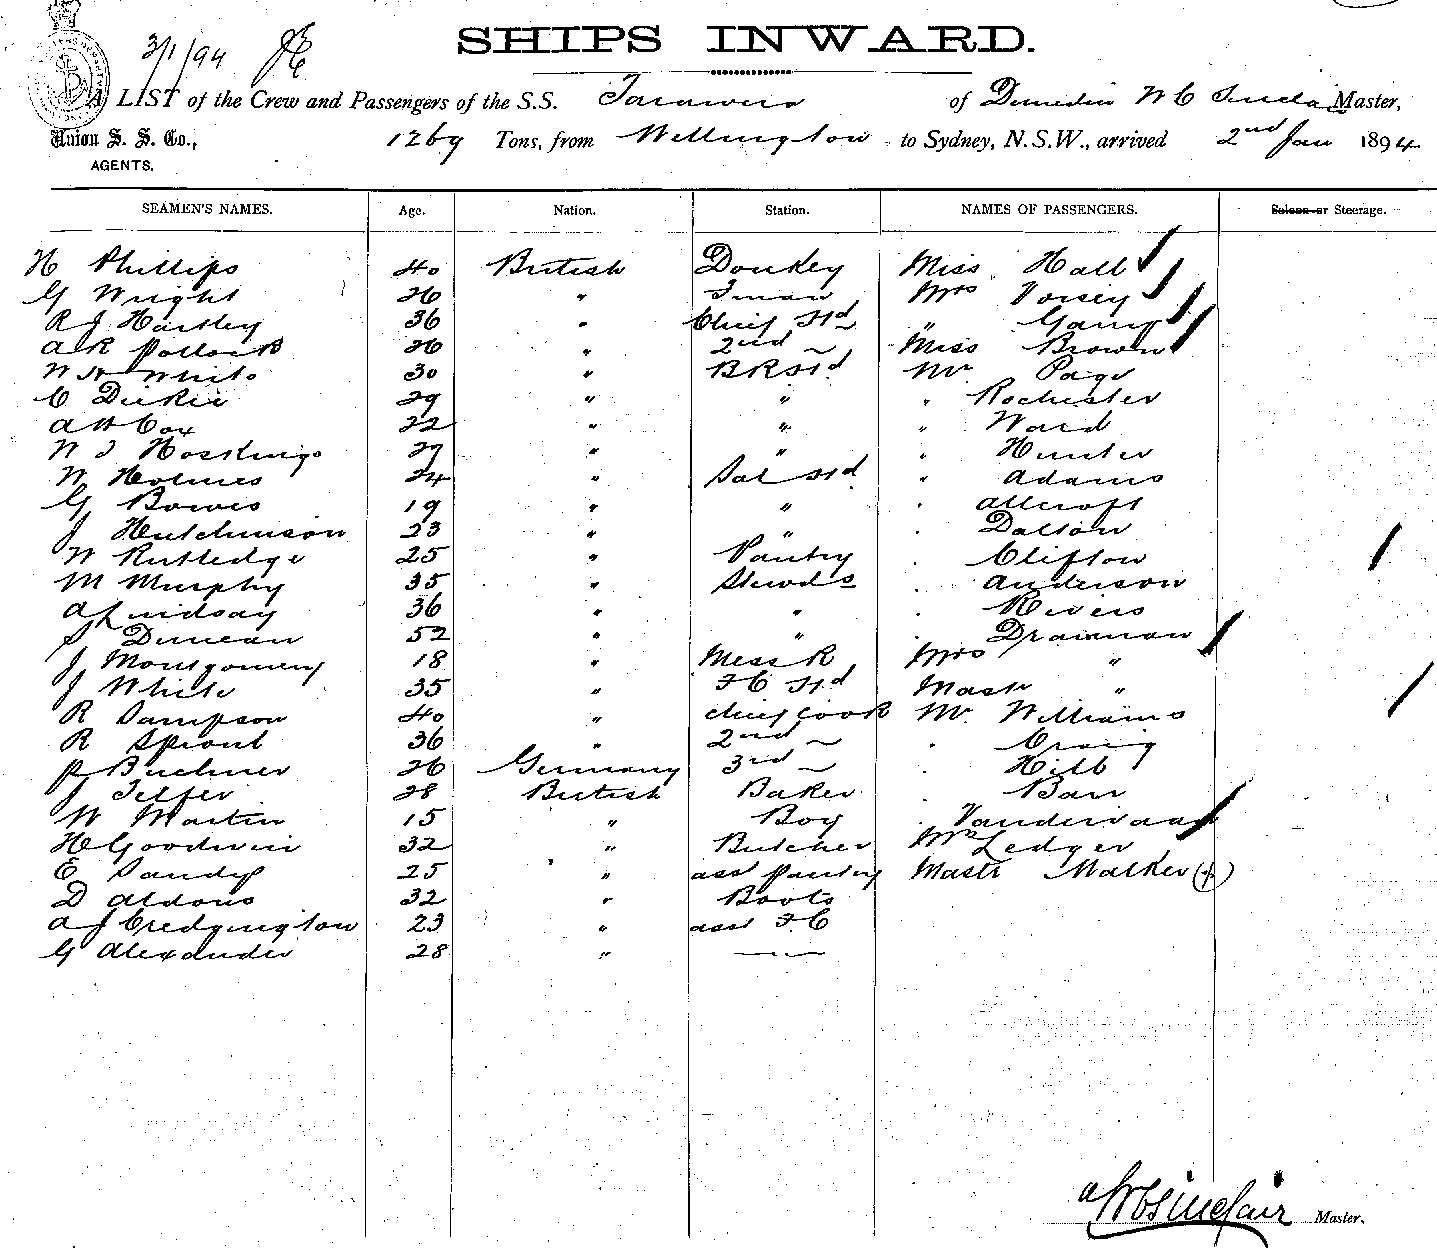 3/1/94
SHIPS INWARD.
A LIST of the Crew and Passengers of the S.S. Tarawera of Dunedin W C Sinclair Master,
Union S. S. Co., AGENTS. 1269 Tons, from Wellington to Sydney, N.S.W., arrived 2nd Jan 1894
SEAMEN'S NAMES. Age. Nation. Station. NAMES OF PASSENGERS. Saloon or Steerage.
H Phillips 40 British Donkey Miss Hall
G Wright 26 " Fman Mrs Vorsey
R J Hartley 36 " Chief Std "
A R Pollock 26 " 2nd ~ Miss Brown
W H White 30 " BR Std Mr Page
C Dickie 29 " " " Rochester
A H Cox 22 " " " Ward
W J Hoskings 27 " " " Hunter
W Holmes 24 " Sal Std " Adams
G Bowes 19 " " " Allcroft
J Hutchinson 23 " " " Dalton
W Rutledge 25 " Pantry " Clifton
M Murphy 35 " Stewds " Anderson
A Lindsay 36 " " " Rivers
S Duncan 52 " " " Drainman
J Montgomery 18 " Mess R Mrs "
J White 35 " F C Std Mastr "
R Sampson 40 " Chief Cook Mr Williams
R Sproul 36 " 2nd ~ " Craig
P Buchner 26 Germany 3rd ~ " Hill
J Telfer 28 British Baker " Barr
W Martin 15 " Boy " Vandervaan
H Goodwin 32 " Butcher Mr Ledger
E Sandy 25 " asst Pantry Mastr Walker (+)
D Aldous 32 " Boots
A J Credgington 23 " asst F.C
G Alexander 28 " —~—
W C Sinclair Master.